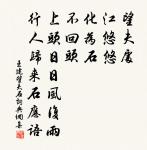 望夫處
江悠悠
化為石
不回頭
上頭日日風復雨
行人歸來石應語
王建望夫石詞典網書